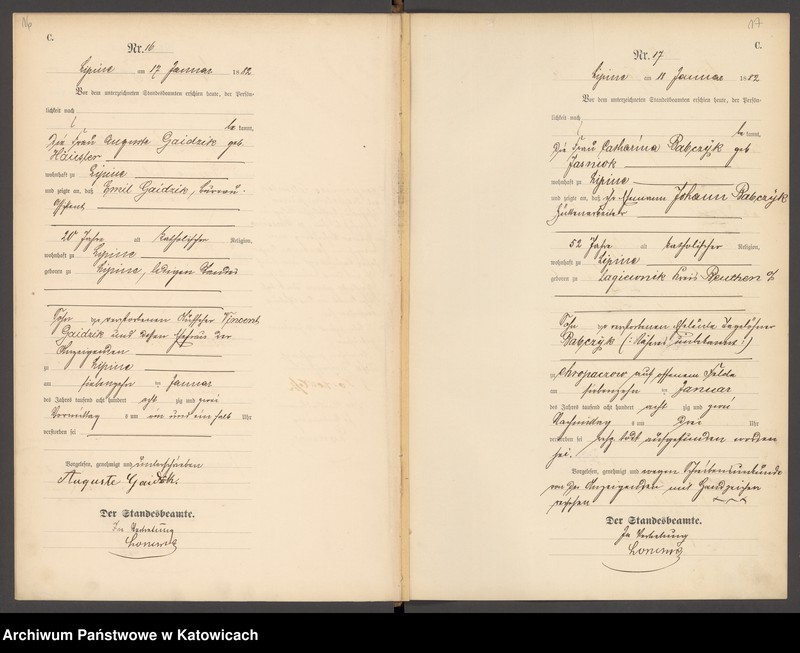 16
C.
Nr. 16
Lipine am 17 Januar 1882
Vor dem unterzeichneten Standesbeamten erschien heute, der Persön-
lichkeit nach
be kannt,
die Frau Auguste Gaidzik geb.
wohnhaft zu Lipine
und zeigte an, daß Emil Gaidzik, Bureau-
Assistent
20 Jahre alt katholischer Religion,
wohnhaft zu Lipine
geboren zu Lipine, ledigen Standes
Sohn des verstorbenen Aufseher Vincent
Gaidzik und dessen Ehefrau der
Anzeigenden
zu Lipine
am siebenzehn ten Januar
des Jahres tausend acht hundert acht zig und zwei
Vormittag s um ein und ein halb Uhr
verstorben sei
Vorgelesen, genehmigt und unterschrieben
Auguste Gaidzik.
Der Standesbeamte.
In Vertretung
17
C.
Nr. 17
Lipine am 18 Januar 1882
Vor dem unterzeichneten Standesbeamten erschien heute, der Persön-
lichkeit nach
be kannt,
die Frau Catharina Pabczyk geb
Jarniok
wohnhaft zu Lipine
und zeigte an, daß ihr Ehemann Johann Pabczyk
Hüttenarbeiter
52 Jahre alt katholischer Religion,
wohnhaft zu Lipine
geboren zu Lagiewnik Kreis Beuthen O/
Sohn des verstorbenen Tagelöhner
Pabczyk (: Näheres unbekannt :)
zu Chropaczow auf offenem Felde
am siebenzehn ten Januar
des Jahres tausend acht hundert acht zig und zwei
Nachmittag s um drei Uhr
verstorben sei resp. todt aufgefunden worden
sei.
Vorgelesen, genehmigt und wegen Schreibensunkunde
von der Anzeigenden mit Handzeichen
versehen
Der Standesbeamte.
In Vertretung
Archiwum Państwowe w Katowicach